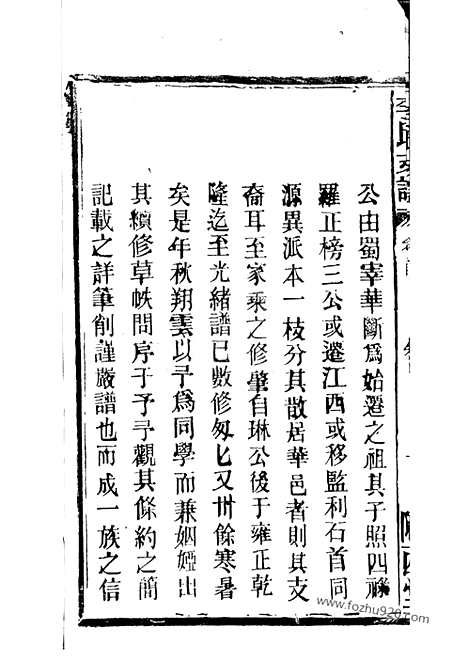 公由蜀宰華斷爲始遷之祖其子照四祿
羅正榜三公或遷江西或移監利石首同
源異派本一枝分其散居華邑者則其支
裔耳至家乘之修肇自琳公後于雍正乾
隆迄至光緒譜已數修匆匕又卅餘寒暑
矣是年秋翔雲以予爲同學而兼姻婭出
其續修草帙問序于予予觀其條約之簡
記載之詳筆削謹嚴譜也而成一族之信
www.fozhu920.com